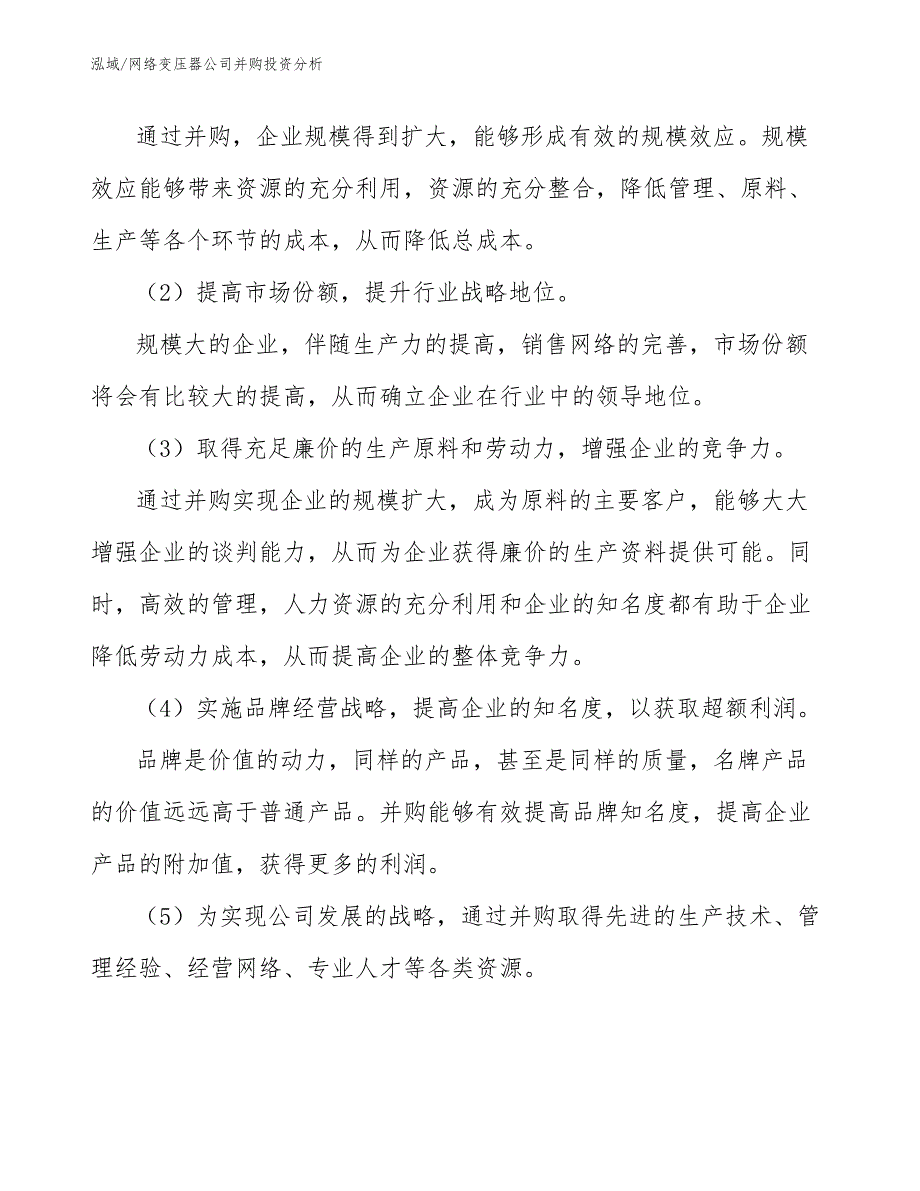 泓域/网络变压器公司并购投资分析
通过并购，企业规模得到扩大，能够形成有效的规模效应。规模
效应能够带来资源的充分利用，资源的充分整合，降低管理、原料、
生产等各个环节的成本，从而降低总成本。
（2）提高市场份额，提升行业战略地位。
规模大的企业，伴随生产力的提高，销售网络的完善，市场份额
将会有比较大的提高，从而确立企业在行业中的领导地位。
（3）取得充足廉价的生产原料和劳动力，增强企业的竞争力。
通过并购实现企业的规模扩大，成为原料的主要客户，能够大大
增强企业的谈判能力，从而为企业获得廉价的生产资料提供可能。同
时，高效的管理，人力资源的充分利用和企业的知名度都有助于企业
降低劳动力成本，从而提高企业的整体竞争力。
（4）实施品牌经营战略，提高企业的知名度，以获取超额利润。
品牌是价值的动力，同样的产品，甚至是同样的质量，名牌产品
的价值远远高于普通产品。并购能够有效提高品牌知名度，提高企业
产品的附加值，获得更多的利润。
（5）为实现公司发展的战略，通过并购取得先进的生产技术、管
理经验、经营网络、专业人才等各类资源。